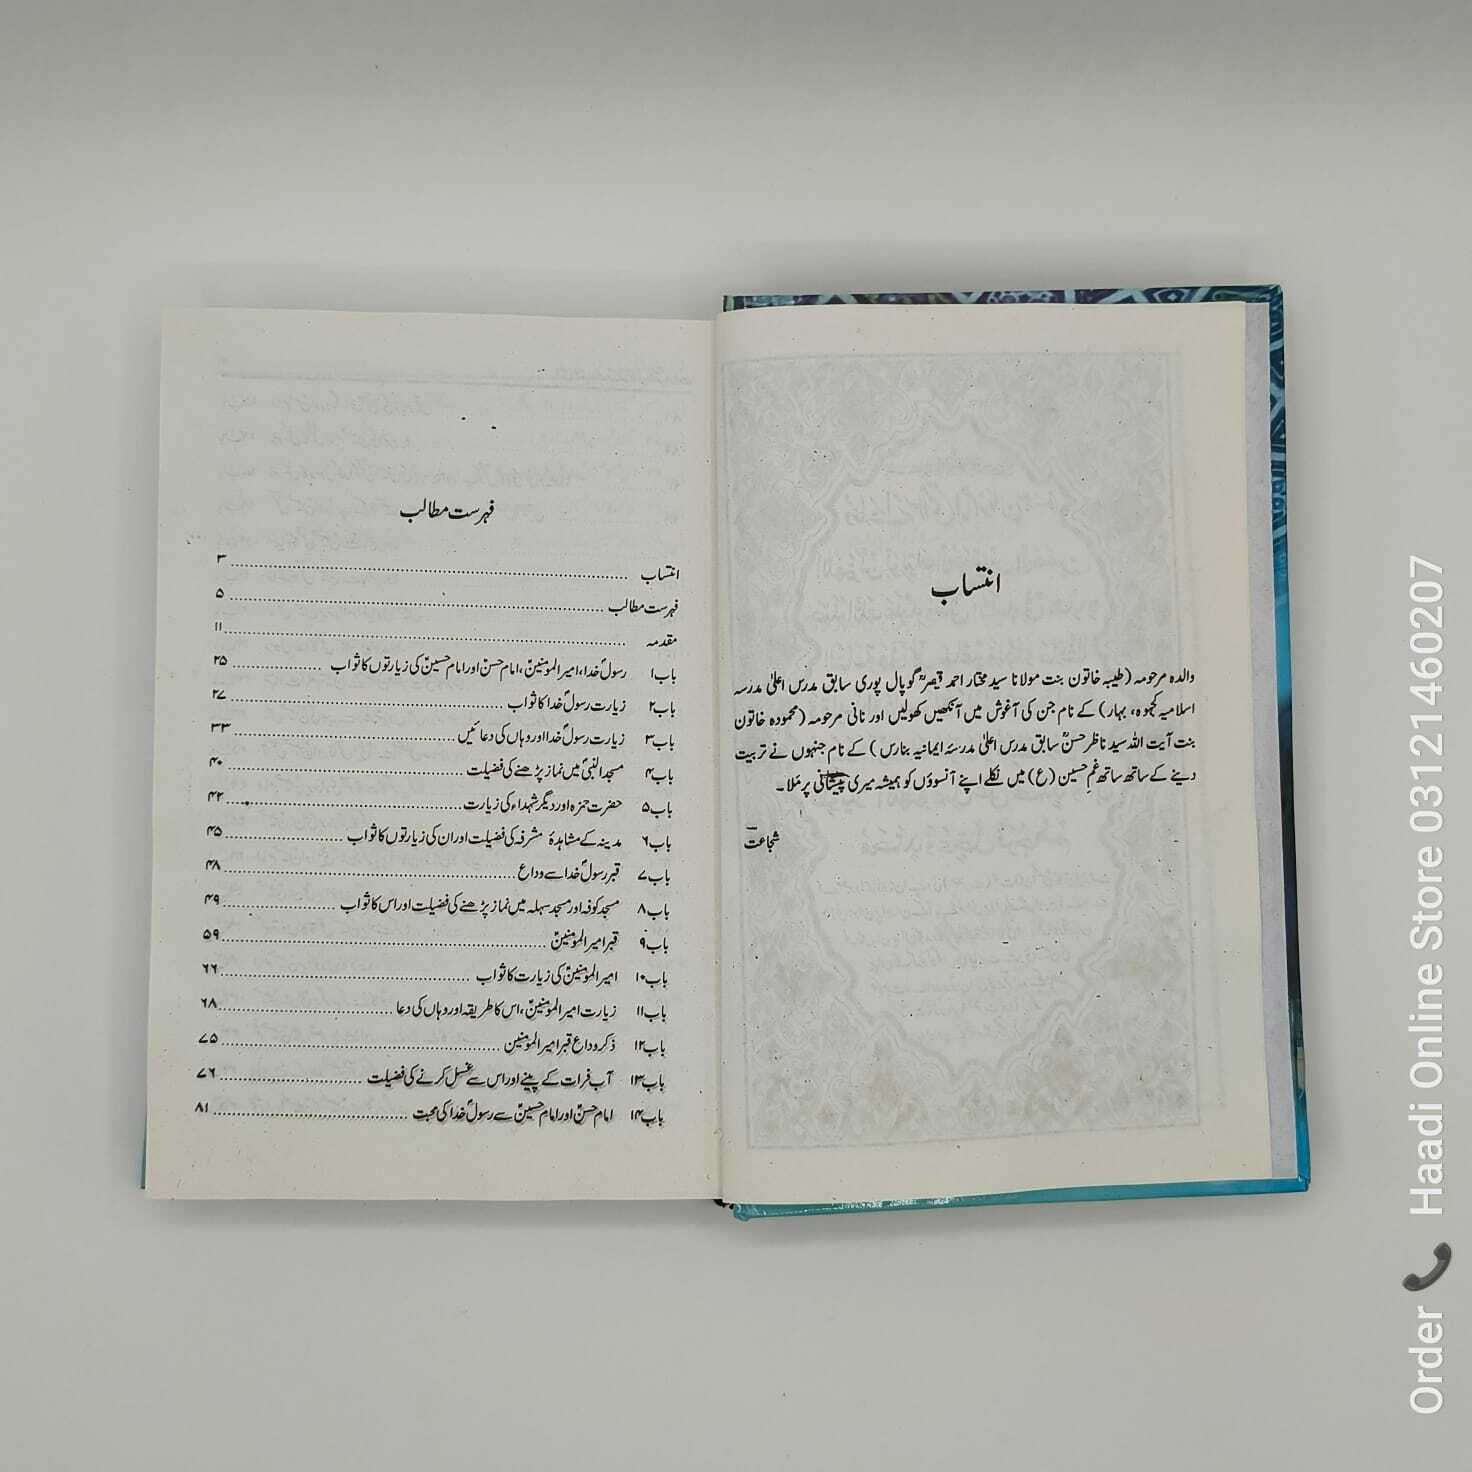 انتساب
والدہ مرحومہ (طیبہ خاتون بنت مولانا سید مختار احمد قیصرؒ گوپال پوری سابق مدرس اعلیٰ مدرسہ
اسلامیہ کجھوہ، بہار) کے نام جن کی آغوش میں آنکھیں کھولیں اور نانی مرحومہ (محمودہ خاتون
بنت آیت اللہ سید ناظر حسنؒ سابق مدرس اعلیٰ مدرسۂ ایمانیہ بنارس) کے نام جنہوں نے تربیت
دینے کے ساتھ ساتھ غم حسین (ع) میں نکلے اپنے آنسوؤں کو ہمیشہ میری پیشانی پر مَلا۔
شجاعت
فہرست مطالب
انتساب ۳
فہرست مطالب ۵
مقدمہ ۱۱
باب۱ رسولؐ خدا، امیر المومنینؑ، امام حسنؑ اور امام حسینؑ کی زیارتوں کا ثواب ۲۵
باب۲ زیارت رسولؐ خدا کا ثواب ۲۷
باب۳ زیارت رسولؐ خدا اور وہاں کی دعائیں ۳۳
باب۴ مسجد النبیؐ میں نماز پڑھنے کی فضیلت ۴۰
باب۵ حضرت حمزہ اور دیگر شہداء کی زیارت ۴۲
باب۶ مدینہ کے مشاہدۂ مشرفہ کی فضیلت اور ان کی زیارتوں کا ثواب ۴۵
باب۷ قبر رسولؐ خدا سے وداع ۴۸
باب۸ مسجد کوفہ اور مسجد سہلہ میں نماز پڑھنے کی فضیلت اور اس کا ثواب ۴۹
باب۹ قبر امیر المومنینؑ ۵۹
باب۱۰ امیر المومنینؑ کی زیارت کا ثواب ۶۶
باب۱۱ زیارت امیر المومنینؑ، اس کا طریقہ اور وہاں کی دعا ۶۸
باب۱۲ ذکر وداع قبر امیر المومنین ۷۵
باب۱۳ آب فرات کے پینے اور اس سے غسل کرنے کی فضیلت ۷۶
باب۱۴ امام حسنؑ اور امام حسینؑ سے رسولؐ خدا کی محبت ۸۱
Order 📞 Haadi Online Store 03121460207